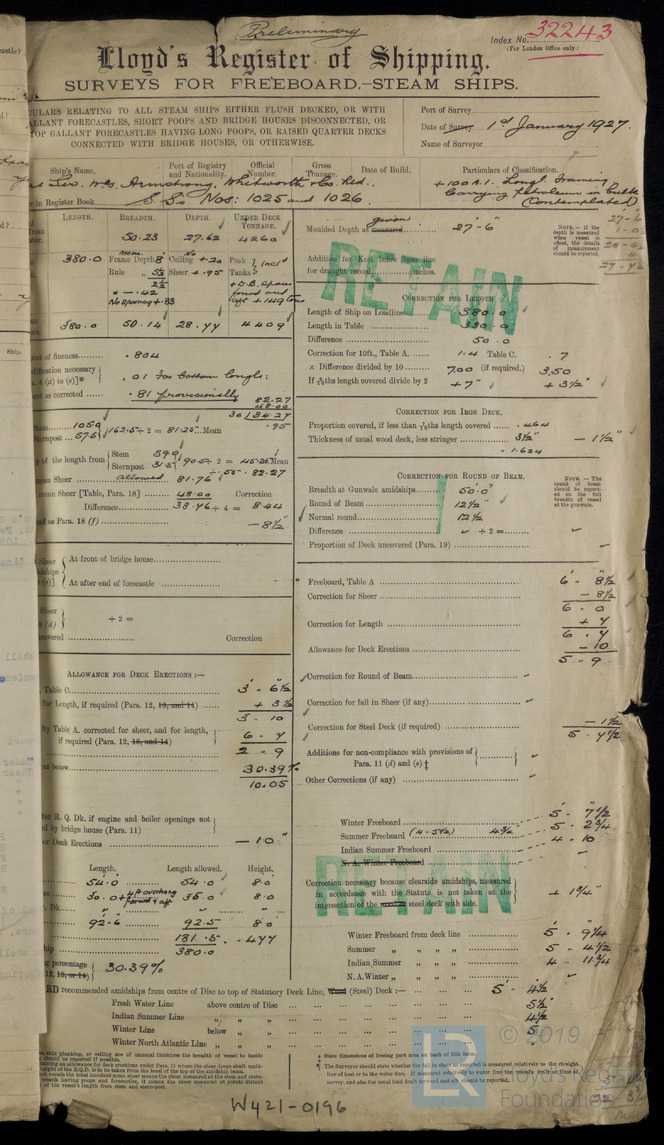 Preliminary
Index No. 32243
(For London Office only.)
Lloyd's Register of Shipping.
SURVEYS FOR FREEBOARD.—STEAM SHIPS.
CULARS RELATING TO ALL STEAM SHIPS EITHER FLUSH DECKED, OR WITH
GALLANT FORECASTLES, SHORT POOPS AND BRIDGE HOUSES DISCONNECTED, OR
TOP GALLANT FORECASTLES HAVING LONG POOPS, OR RAISED QUARTER DECKS
CONNECTED WITH BRIDGE HOUSES, OR OTHERWISE.
Port of Survey
Date of Survey 1st January 1927.
Name of Surveyor
Ship's Name, Port of Registry and Nationality. Official Number. Gross Tonnage. Date of Build.
Armstrong, Whitworth & Co. Ltd.
in Register Book. S.S. Nos: 1025 and 1026.
Particulars of Classification.
+100A.1. Longl. Framing
Carrying Petroleum in Bulk
(Contemplated)
LENGTH. BREADTH. DEPTH. UNDER DECK TONNAGE.
380.0 50.23 27.62 4260
Frame Depth 8 Ceiling +20 Peak Tanks incl
Sheer +.95
No Sparring +.83
380.0 50.14 28.44 4409
Moulded Depth as given measured 27'-6"
Addition for Keel below base line
for draught record inches.
NOTE.—If the depth is measured when vessel is afloat, the details of measurement should be reported.
RETAIN
CORRECTION FOR LENGTH
Length of Ship on Loadline 380.0
Length in Table 330.0
Difference 50.0
Correction for 10ft., Table A. 1.4 Table C. .7
× Difference divided by 10 7.00 (if required.) 3.50
If 6/10ths length covered divide by 2 +7" +3½"
of fineness .804
.01 for bottom longls:
as corrected .81 provisionally
Stem 105.0
Sternpost 57.5 162.5÷2 = 81.25 Mean
of the length from Stem 59.0
Sternpost 31.5 90.5÷2 = 45.25 Mean
÷.55 = 82.27
mean Sheer allowed 81.76
mean Sheer [Table, Para. 18] 48.00 Correction
Difference 33.76÷4 = 8.44
and as Para. 18 (f) —8½
CORRECTION FOR IRON DECK.
Proportion covered, if less than 7/10ths length covered .464
Thickness of usual wood deck, less stringer 3½" — 1½"
1.624
CORRECTION FOR ROUND OF BEAM.
Breadth at Gunwale amidships 50.0
Round of Beam 12½"
Normal round 12½
Difference ÷2=
Proportion of Deck uncovered (Para. 19)
NOTE.—The round of beam should be reported on the full breadth of vessel at the gunwale.
At front of bridge house
At after end of forecastle
÷ 2 =
Correction
Freeboard, Table A 6'-8½
Correction for Sheer —8½
6.0
Correction for Length +7
6.7
Allowance for Deck Erections —10
5.9
Correction for Round of Beam
Correction for fall in Sheer (if any)
Correction for Steel Deck (if required) —1½
5.7½
Additions for non-compliance with provisions of
Para. 11 (d) and (e) ‡
Other Corrections (if any)
ALLOWANCE FOR DECK ERECTIONS:—
Table C. 3'-6½
for Length, if required (Para. 12, 13, and 14) +3½
3-10
by Table A. corrected for sheer, and for length,
if required (Para. 12, 13, and 14) 6-7
2-9
as below 30.39%
10.05
for R. Q. Dk. if engine and boiler openings not
by bridge house (Para. 11)
for Deck Erections —10"
Length. Length allowed. Height.
54.0 54.0 8.0
30.0 35.0 8.0
92-6 92.5 8.0
181.5 .477
380.0
percentage 30.39%
Winter Freeboard 5-7½
Summer Freeboard 5-2¾
Indian Summer Freeboard 4-10
N. A. Winter Freeboard
RETAIN
Correction necessary because clearside amidships, measured
in accordance with the Statute is not taken at the
intersection of the wood steel deck with side. +1¾"
Winter Freeboard from deck line 5-9¼
Summer „ „ „ 5.4½
Indian Summer „ „ „ 4-11¾
N. A. Winter „ „ „
RD recommended amidships from centre of Disc to top of Statutory Deck Line, Wood (Steel) Deck:— 5'-4½
Fresh Water Line above centre of Disc 5½"
Indian Summer Line „ „ 4½
Winter Line below „ 5
Winter North Atlantic Line „ „
State dimensions of freeing port area on back of this form.
The Surveyors should state whether the fall in sheer is reported is measured relatively to the straight
line of keel or to the water line. If measured relatively to water line the vessel's draft at time of
survey, and also the usual load draft forward and aft should be reported.
W421-0196
LR
© 2019
Lloyd's Register
Foundation